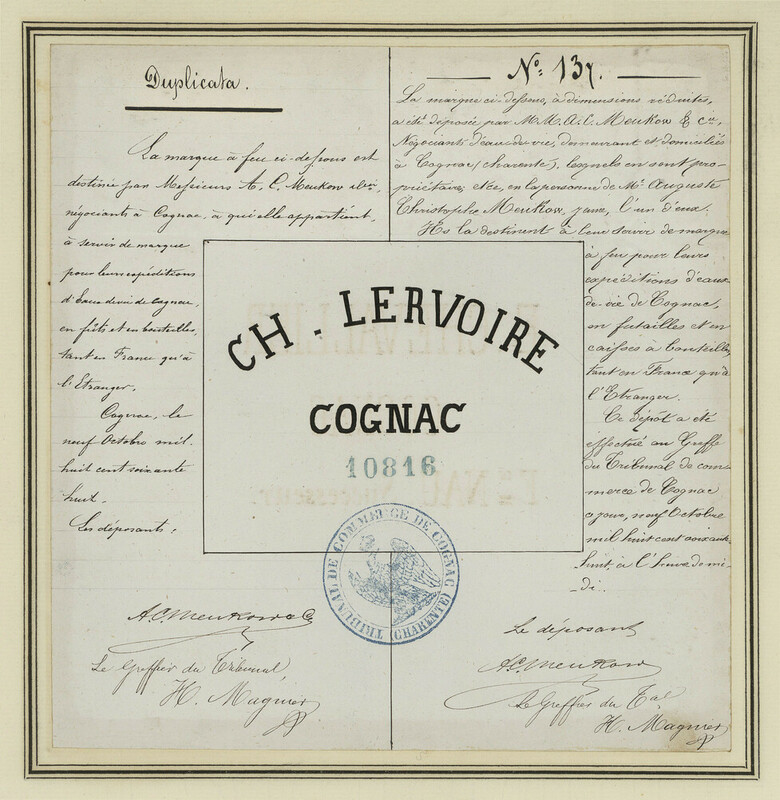 Duplicata.
La marque à feu ci-dessous est
destinée par Messieurs A. C. Meukow & Cie.
négociants à Cognac, à qui elle appartient,
à servir de marque
pour leurs expéditions
d'Eaux de vie de Cognac,
en fûts et en bouteilles,
tant en France qu'à
l'Etranger.
Cognac, le
neuf Octobre mil
huit cent soixante
huit.
Les déposants:
A.C. Meukow & C
Le Greffier du Tribunal
H. Magnier
No. 137.
La marque ci-dessous, à dimensions réduites,
a été déposée par MM. A. C. Meukow & Cie,
Négociants d'eau de vie, demeurant et domiciliés
à Cognac (Charente), lesquels en sont pro-
priétaires, en la personne de Mr. Auguste
Christophe Meukow, l'un d'eux.
Ils la destinent à leur servir de marque
à feu pour leurs
expéditions d'eaux
de vie de Cognac,
en futailles et en
caisses à bouteilles,
tant en France qu'à
l'Etranger.
Ce dépôt a été
effectué au Greffe
du Tribunal de com-
merce de Cognac
ce jour, neuf Octobre
mil huit cent soixante
huit, à l'heure de mi-
di.
Le déposant
A.C. Meukow
Le Greffier du Tal
H. Magnier
CH. LERVOIRE
COGNAC
10816
TRIBUNAL DE COMMERCE DE COGNAC
(CHARENTE)